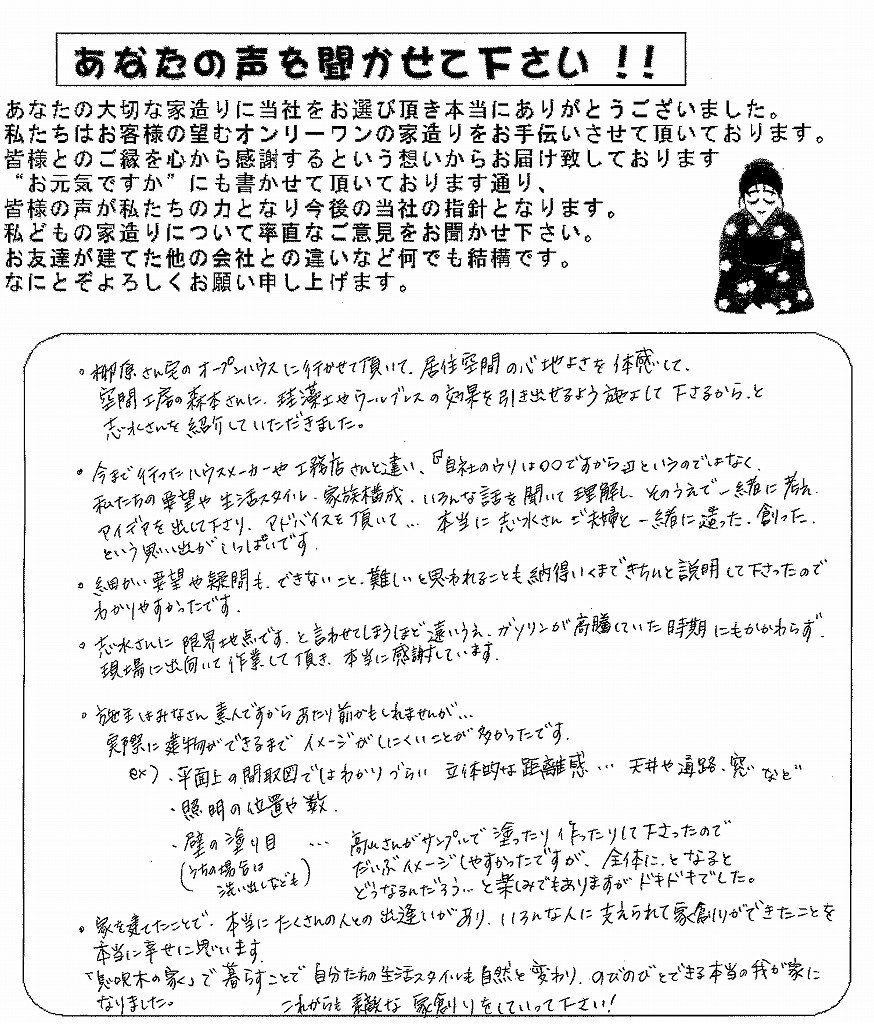 あなたの声を聞かせて下さい！！
あなたの大切な家造りに当社をお選び頂き本当にありがとうございました。
私たちはお客様の望むオンリーワンの家造りをお手伝いさせて頂いております。
皆様とのご縁を心から感謝するという想いからお届け致しております
“お元気ですか”にも書かせて頂いております通り、
皆様の声が私たちの力となり今後の当社の指針となります。
私どもの家造りについて率直なご意見をお聞かせ下さい。
お友達が建てた他の会社との違いなど何でも結構です。
なにとぞよろしくお願い申し上げます。
。柳原さん宅のオープンハウスに行かせて頂いて、居住空間の心地よさを体感して、
空間工房の森本さんに、珪藻土やウールブレスの効果を引き出せるよう施工して下さるから、と
志水さんを紹介していただきました。
。今まで行ったハウスメーカーや工務店さんと違い、『自社のウリは〇〇ですから』というのではなく、
私たちの要望や生活スタイル、家族構成、いろんな話を聞いて理解し、そのうえで一緒に考え、
アイデアを出して下さり、アドバイスを頂いて… 本当に志水さんご夫婦と一緒に造った、創った、
という思い出がいっぱいです。
。細かい要望や疑問も、できないこと、難しいと思われることも納得いくまできちんと説明して下さったので
わかりやすかったです。
。志水さんに限界地点です、と言わせてしまうほど遠いうえ、ガソリンが高騰していた時期にもかかわらず、
現場に出向いて作業して頂き、本当に感謝しています。
。施主はみなさん素人ですからあたり前かもしれませんが…
実際に建物ができるまでイメージがしにくいことが多かったです。
ex）・平面上の間取図ではわかりづらい 立体的な距離感 … 天井や通路、窓など
・照明の位置や数、
・壁の塗り目 … 高山さんがサンプルで塗ったり作ったりして下さったので
（うちの場合は 洗い出しなども） だいぶイメージしやすかったですが、全体に、となると
どうなるんだろう…と楽しみでもありますがドキドキでした。
。家を建てたことで、本当にたくさんの人との出逢いがあり、いろんな人に支えられて家創りができたことを
本当に幸せに思います。
「息吹木の家」で暮らすことで自分たちの生活スタイルも自然と変わり、のびのびとできる本当の我が家に
なりました。 これからも素敵な家創りをしていって下さい！